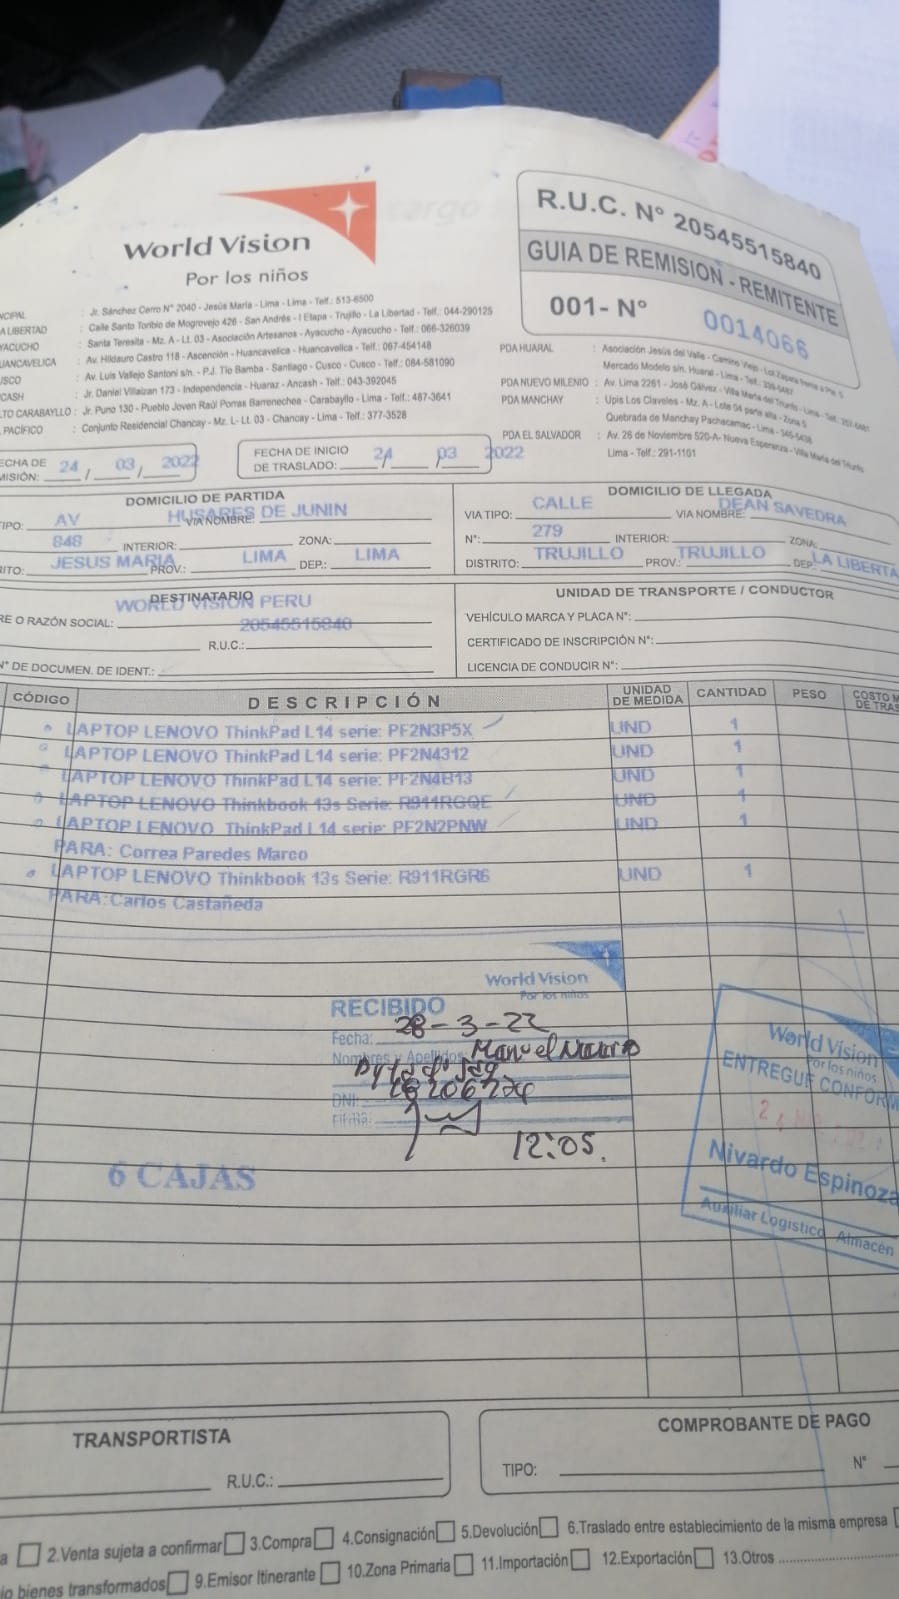 World Vision
Por los niños
R.U.C. Nº 20545515840
GUIA DE REMISION - REMITENTE
001- Nº 0014066
NCIPAL : Jr. Sánchez Cerro N° 2040 - Jesús María - Lima - Lima - Telf.: 513-6500
A LIBERTAD : Calle Santo Toribio de Mogrovejo 426 - San Andrés - I Etapa - Trujillo - La Libertad - Telf.: 044-290125
YACUCHO : Santa Teresita - Mz. A - Lt. 03 - Asociación Artesanos - Ayacucho - Ayacucho - Telf.: 066-326039
UANCAVELICA : Av. Hildauro Castro 118 - Ascensión - Huancavelica - Huancavelica - Telf.: 067-454148
USCO : Av. Luis Vallejo Santoni s/n. - P.J. Tío Bamba - Santiago - Cusco - Cusco - Telf.: 084-581090
CASH : Jr. Daniel Villaizan 173 - Independencia - Huaraz - Ancash - Telf.: 043-392045
LTO CARABAYLLO : Jr. Puno 130 - Pueblo Joven Raúl Porras Barrenechea - Carabayllo - Lima - Telf.: 487-3641
L PACÍFICO : Conjunto Residencial Chancay - Mz. L- Lt. 03 - Chancay - Lima - Telf.: 377-3528
PDA HUARAL : Asociación Jesús del Valle - Camino Viejo - Lot
Mercado Modelo s/n. Huaral - Lima - Telf.:
PDA NUEVO MILENIO : Av. Lima 2261 - José Gálvez - Villa María del Triunfo - Lima - Telf.:
PDA MANCHAY : Upis Los Claveles - Mz. A - Lote 04 parte alta - Zona 5
Quebrada de Manchay Pachacamac - Lima -
PDA EL SALVADOR : Av. 26 de Noviembre 520-A- Nueva Esperanza - Villa María del Triunfo
Lima - Telf.: 291-1101
ECHA DE
MISIÓN: 24 / 03 / 2022
FECHA DE INICIO
DE TRASLADO: 24 / 03 2022
DOMICILIO DE PARTIDA
TIPO: AV VIA NOMBRE: HUSARES DE JUNIN
848 INTERIOR: ZONA:
RITO: JESUS MARIA PROV.: LIMA DEP.: LIMA
DOMICILIO DE LLEGADA
VIA TIPO: CALLE VIA NOMBRE: DEAN SAVEDRA
N°: 279 INTERIOR: ZONA:
DISTRITO: TRUJILLO PROV.: TRUJILLO DEP.: LA LIBERTA
DESTINATARIO
RE O RAZÓN SOCIAL: WORLD VISION PERU
R.U.C.: 20545515840
N° DE DOCUMEN. DE IDENT.:
UNIDAD DE TRANSPORTE / CONDUCTOR
VEHÍCULO MARCA Y PLACA N°:
CERTIFICADO DE INSCRIPCIÓN N°:
LICENCIA DE CONDUCIR N°:
CÓDIGO DESCRIPCIÓN UNIDAD DE MEDIDA CANTIDAD PESO COSTO M DE TRAS
LAPTOP LENOVO ThinkPad L14 serie: PF2N3P5X UND 1
LAPTOP LENOVO ThinkPad L14 serie: PF2N4312 UND 1
LAPTOP LENOVO ThinkPad L14 serie: PF2N4B13 UND 1
LAPTOP LENOVO Thinkbook 13s Serie: R911RGQE UND 1
LAPTOP LENOVO ThinkPad L14 serie: PF2N2PNW UND 1
PARA: Correa Paredes Marco
LAPTOP LENOVO Thinkbook 13s Serie: R911RGR6 UND 1
PARA: Carlos Castañeda
World Vision
Por los niños
RECIBIDO
Fecha: 28-3-22
Nombres y Apellidos Manuel
DNI:
Firma:
12:05.
6 CAJAS
World Vision
Por los niños
ENTREGUE CONFORM
Nivardo Espinoza
Auxiliar Logistico Almacén
TRANSPORTISTA
R.U.C.:
COMPROBANTE DE PAGO
TIPO: N°
a 2.Venta sujeta a confirmar 3.Compra 4.Consignación 5.Devolución 6.Traslado entre establecimiento de la misma empresa
io bienes transformados 9.Emisor Itinerante 10.Zona Primaria 11.Importación 12.Exportación 13.Otros